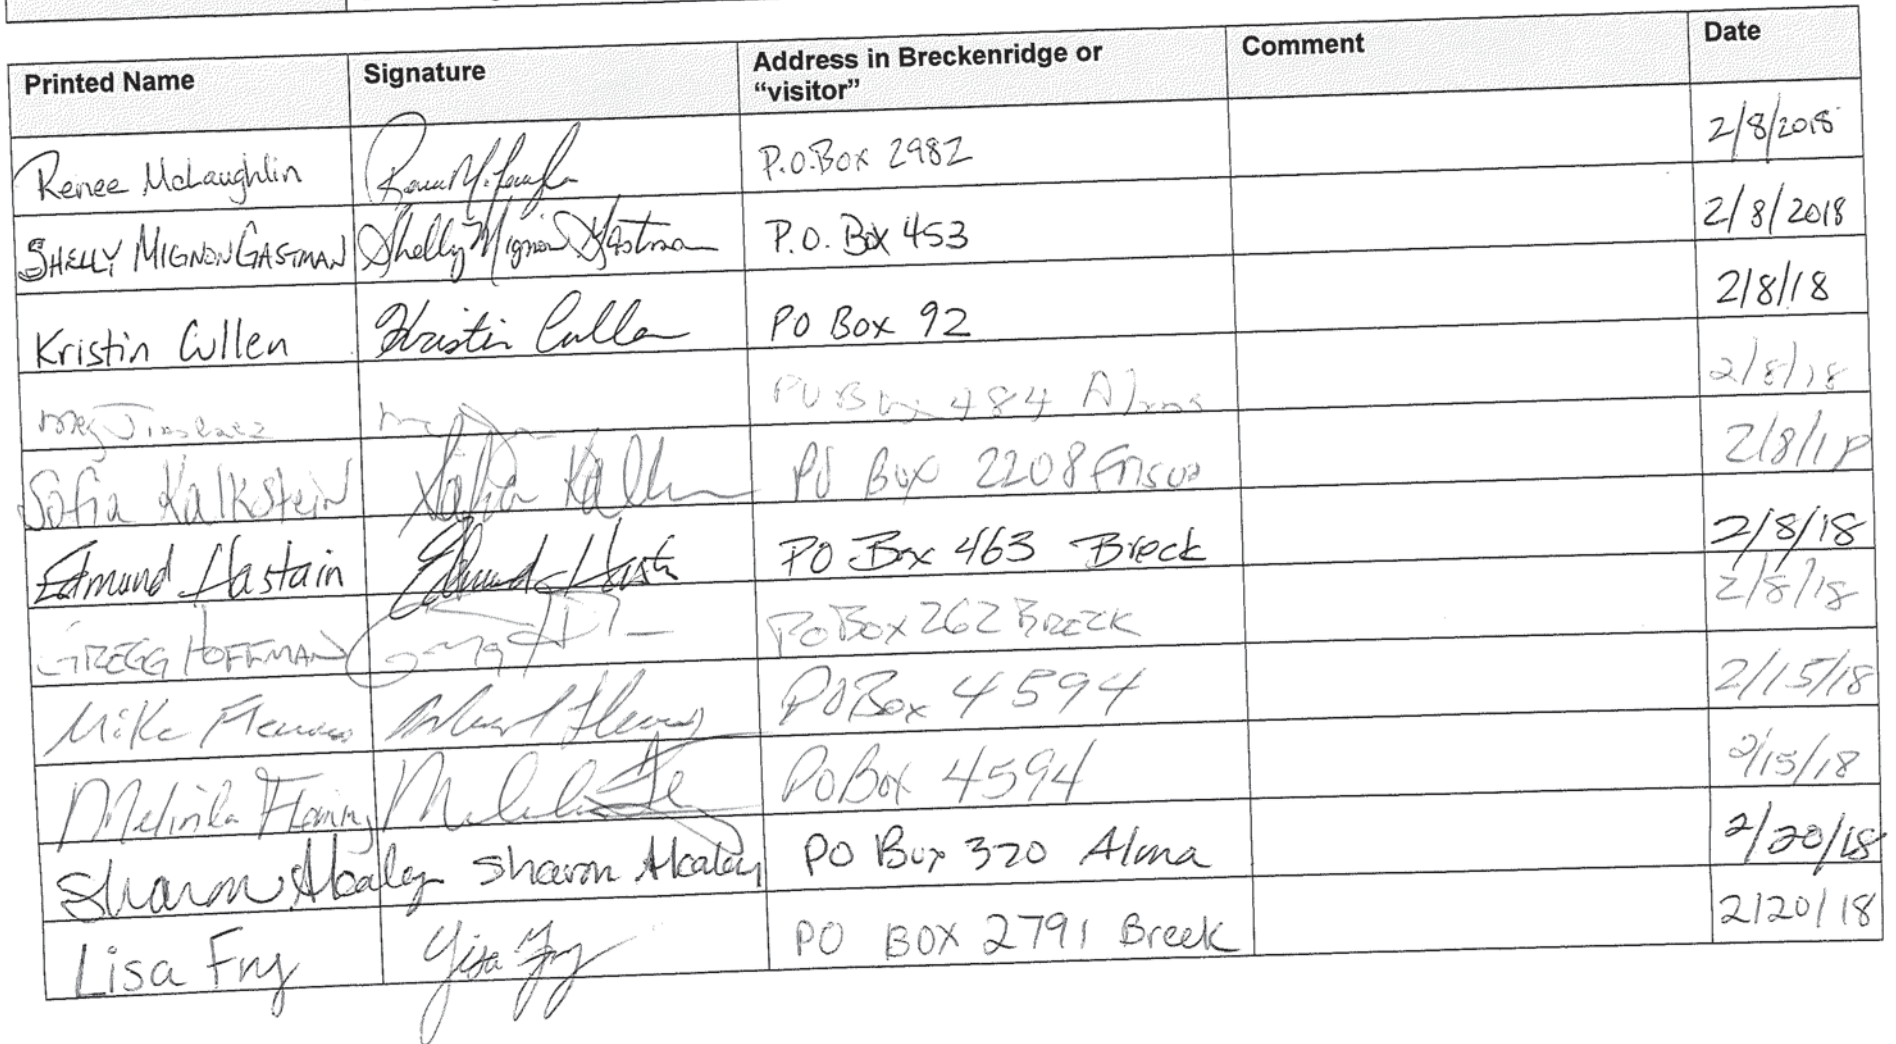 Printed Name Signature Address in Breckenridge or "visitor" Comment Date
Renee McLaughlin P.O.Box 2982 2/8/2018
SHELLY MIGNON GASTMAN Shelly Mignon Gastman P.O. Box 453 2/8/2018
Kristin Cullen Kristin Cullen PO Box 92 2/8/18
Meg PO Box 484 Alma 2/8/18
Sofia Kalkstein Sofia PO Box 2208 Frisco 2/8/18
Edmund Hastain Edmund PO Box 463 Breck 2/8/18
GREGG HOFFMAN PO Box 262 BRECK 2/8/18
Mike PO Box 4594 2/15/18
Melinda Fleming PO Box 4594 2/15/18
Sharon Sharon PO Box 320 Alma 2/20/18
Lisa Fry Lisa Fry PO BOX 2791 Breck 2/20/18